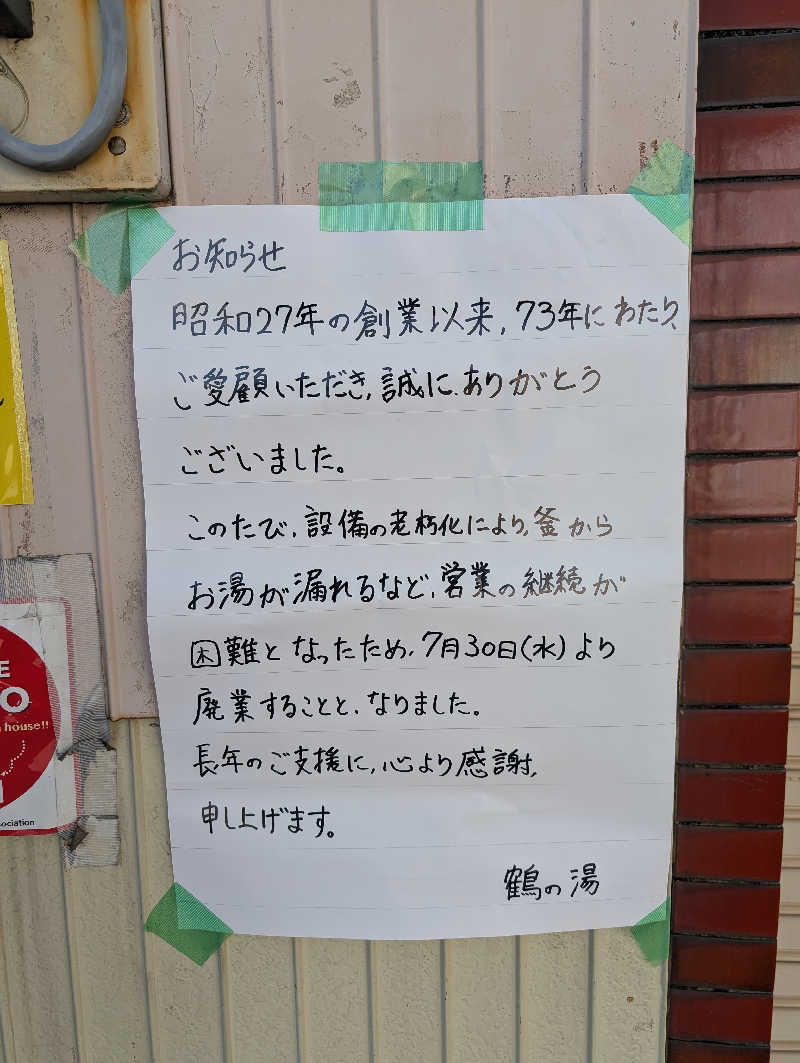 お知らせ
昭和27年の創業以来,73年にわたり、
ご愛顧いただき,誠に.ありがとう
ございました。
このたび,設備の老朽化により,釜から
お湯が漏れるなど,営業の継続が
困難となったため,7月30日(水)より
廃業することと,なりました。
長年のご支援に,心より感謝,
申し上げます。
鶴の湯
E
O
house!!
sociation